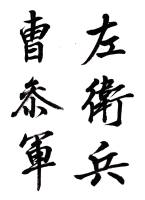 左衛兵
曹叅軍